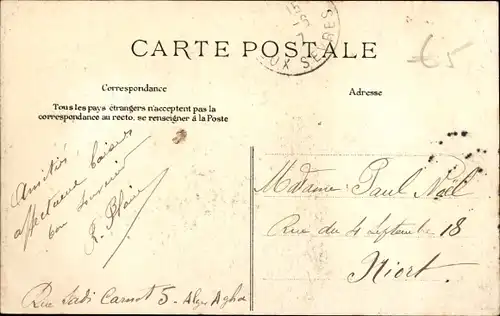 CARTE POSTALE
UX SEVRES
€5
Correspondance
Adresse
Tous les pays étrangers n'acceptent pas la
correspondance au recto, se renseigner à la Poste
Amitiés
affectueux baisers
bon souvenir
Madame Paul Noël
Rue du 4 Septembre 18
Niort.
Rue Sadi Carnot 5 - Alger Agha